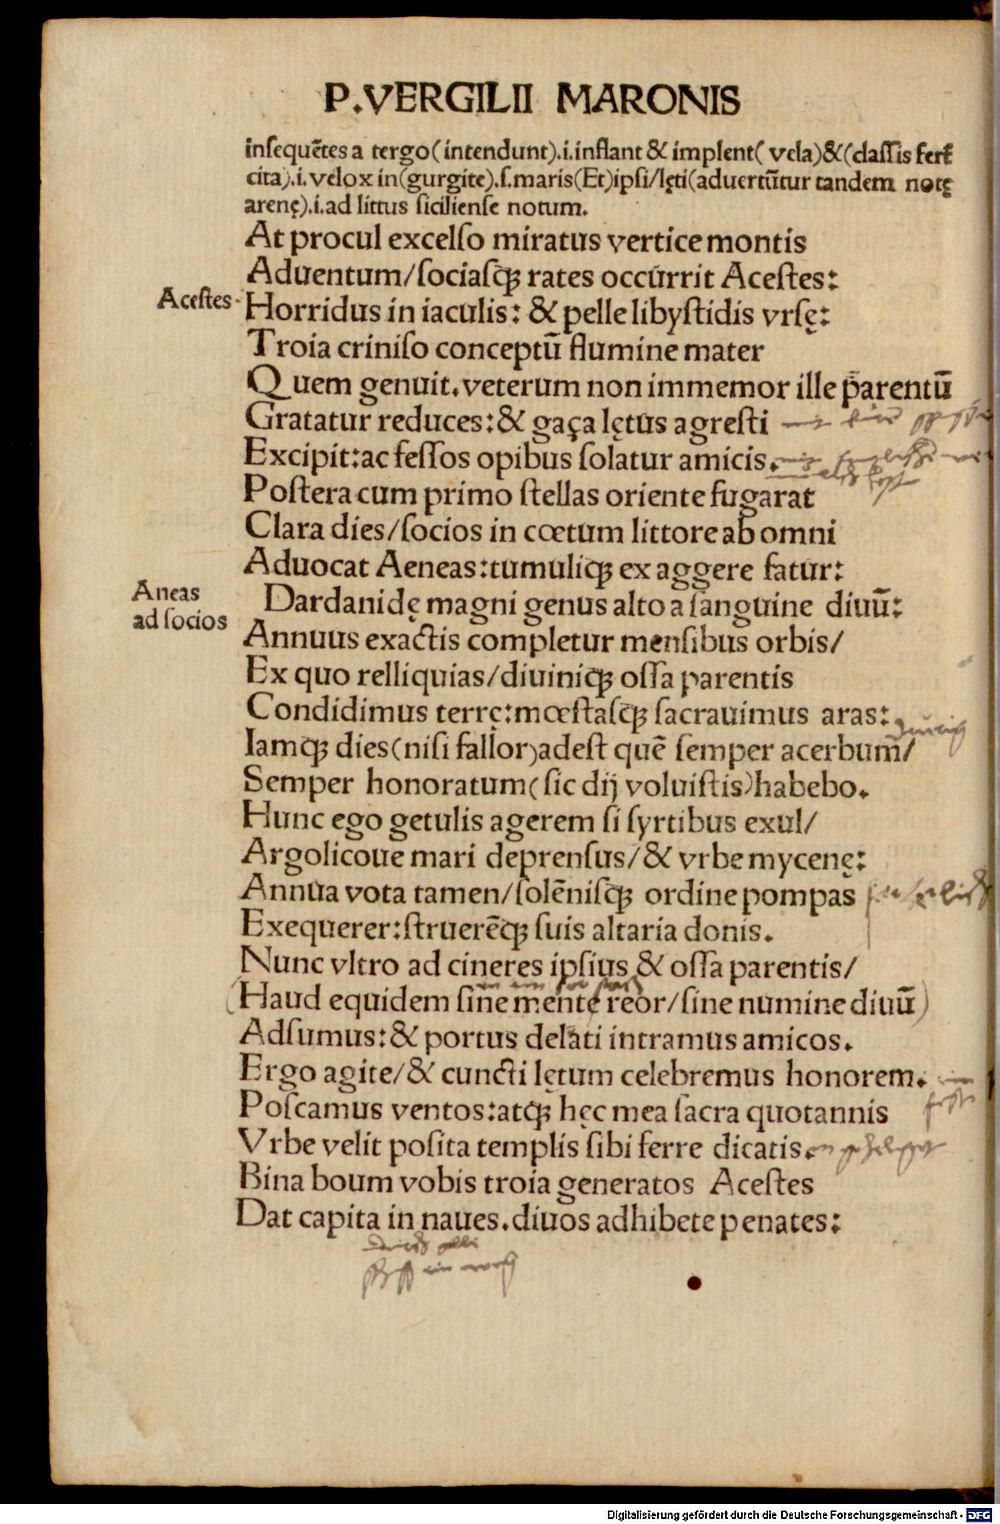 P.VERGILII MARONIS
insequētes a tergo(intendunt).i.inflant & implent( vela)&(classis fert
cita).i.velox in(gurgite).s.maris(Et)ipsi/lęti(aduertūtur tandem notę
arenę).i.ad littus siciliense notum.
At procul excelso miratus vertice montis
Aduentum/sociasq; rates occurrit Acestes:
Acestes
Horridus in iaculis: & pelle libystidis vrsę:
Troia criniso conceptū flumine mater
Quem genuit.veterum non immemor ille parentū
Gratatur reduces:& gaça lętus agresti
Excipit:ac fessos opibus solatur amicis.
Postera cum primo stellas oriente fugarat
Clara dies/socios in cœtum littore ab omni
Aduocat Aeneas:tumuliq; ex aggere fatur:
Aneas
ad socios
Dardanidę magni genus alto a sanguine diuū:
Annuus exactis completur mensibus orbis/
Ex quo relliquias/diuiniq; ossa parentis
Condidimus terrę:mœstasq; sacrauimus aras:
Iamq; dies(nisi fallor)adest quē semper acerbum/
Semper honoratum(sic dij voluistis)habebo.
Hunc ego getulis agerem si syrtibus exul/
Argolicoue mari deprensus/& vrbe mycenę:
Annua vota tamen/solēnisq; ordine pompas
Exequerer:struerēq; suis altaria donis.
Nunc vltro ad cineres ipsius & ossa parentis/
(Haud equidem sine mente reor/sine numine diuū)
Adsumus:& portus delati intramus amicos.
Ergo agite/& cuncti lętum celebremus honorem.
Poscamus ventos:atq; hęc mea sacra quotannis
Vrbe velit posita templis sibi ferre dicatis.
Bina boum vobis troia generatos Acestes
Dat capita in naues.diuos adhibete penates:
Digitalisierung gefördert durch die Deutsche Forschungsgemeinschaft - DFG